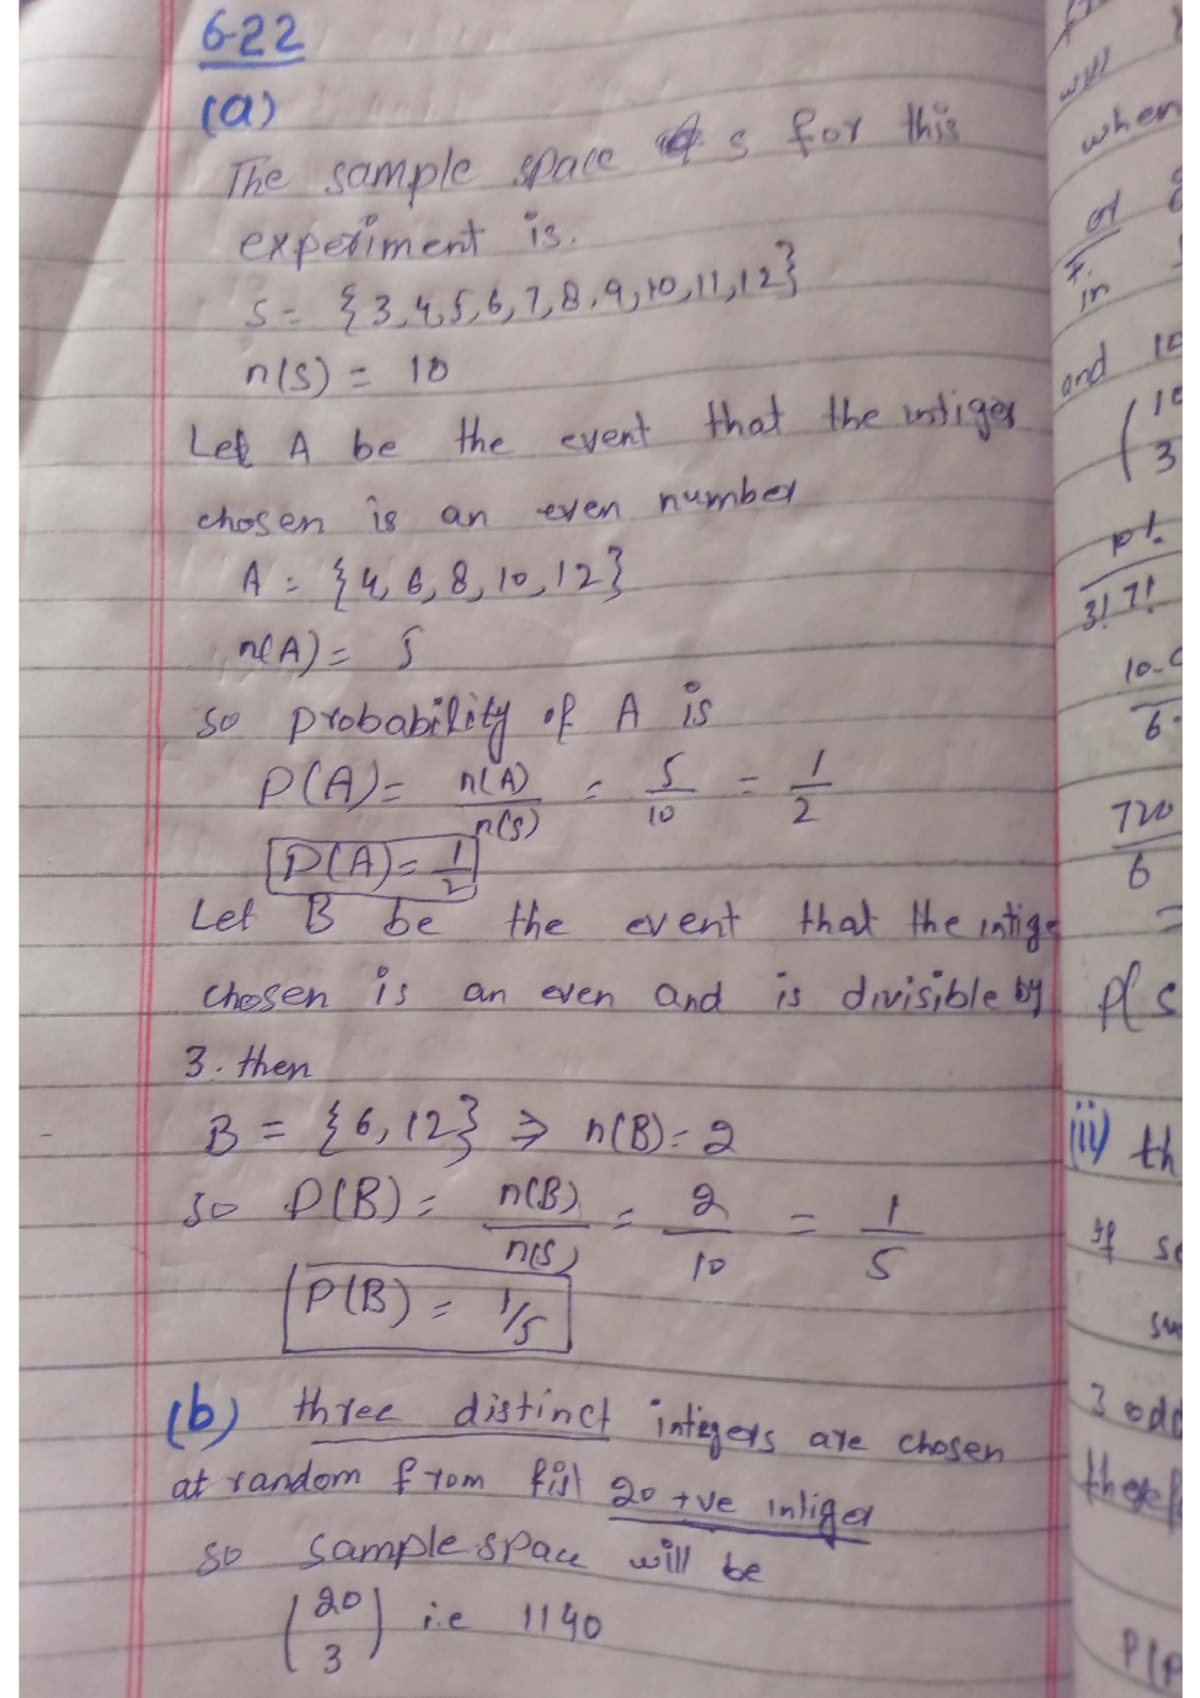 6.22
(a)
The sample space s for this
experiment is.
S = {3,4,5,6,7,8,9,10,11,12}
n(S) = 10
Let A be the event that the intiger
chosen is an even number
A = {4, 6, 8, 10, 12}
n(A) = 5
so probability of A is
P(A) = n(A)/n(S) = 5/10 = 1/2
P(A) = 1/2
Let B be the event that the intige
chosen is an even and is divisible by
3. then
B = {6, 12} ⇒ n(B) = 2
so P(B) = n(B)/n(S) = 2/10 = 1/5
P(B) = 1/5
(b) three distinct integers are chosen
at random from fist 20 +ve intiger
so sample space will be
(20 3) i.e 1140
will
when
of
in
and 10
(10 3
10!/3!7!
10.
6.
720/6
=
P(S
(ii) th
If so
3 odd
P(P